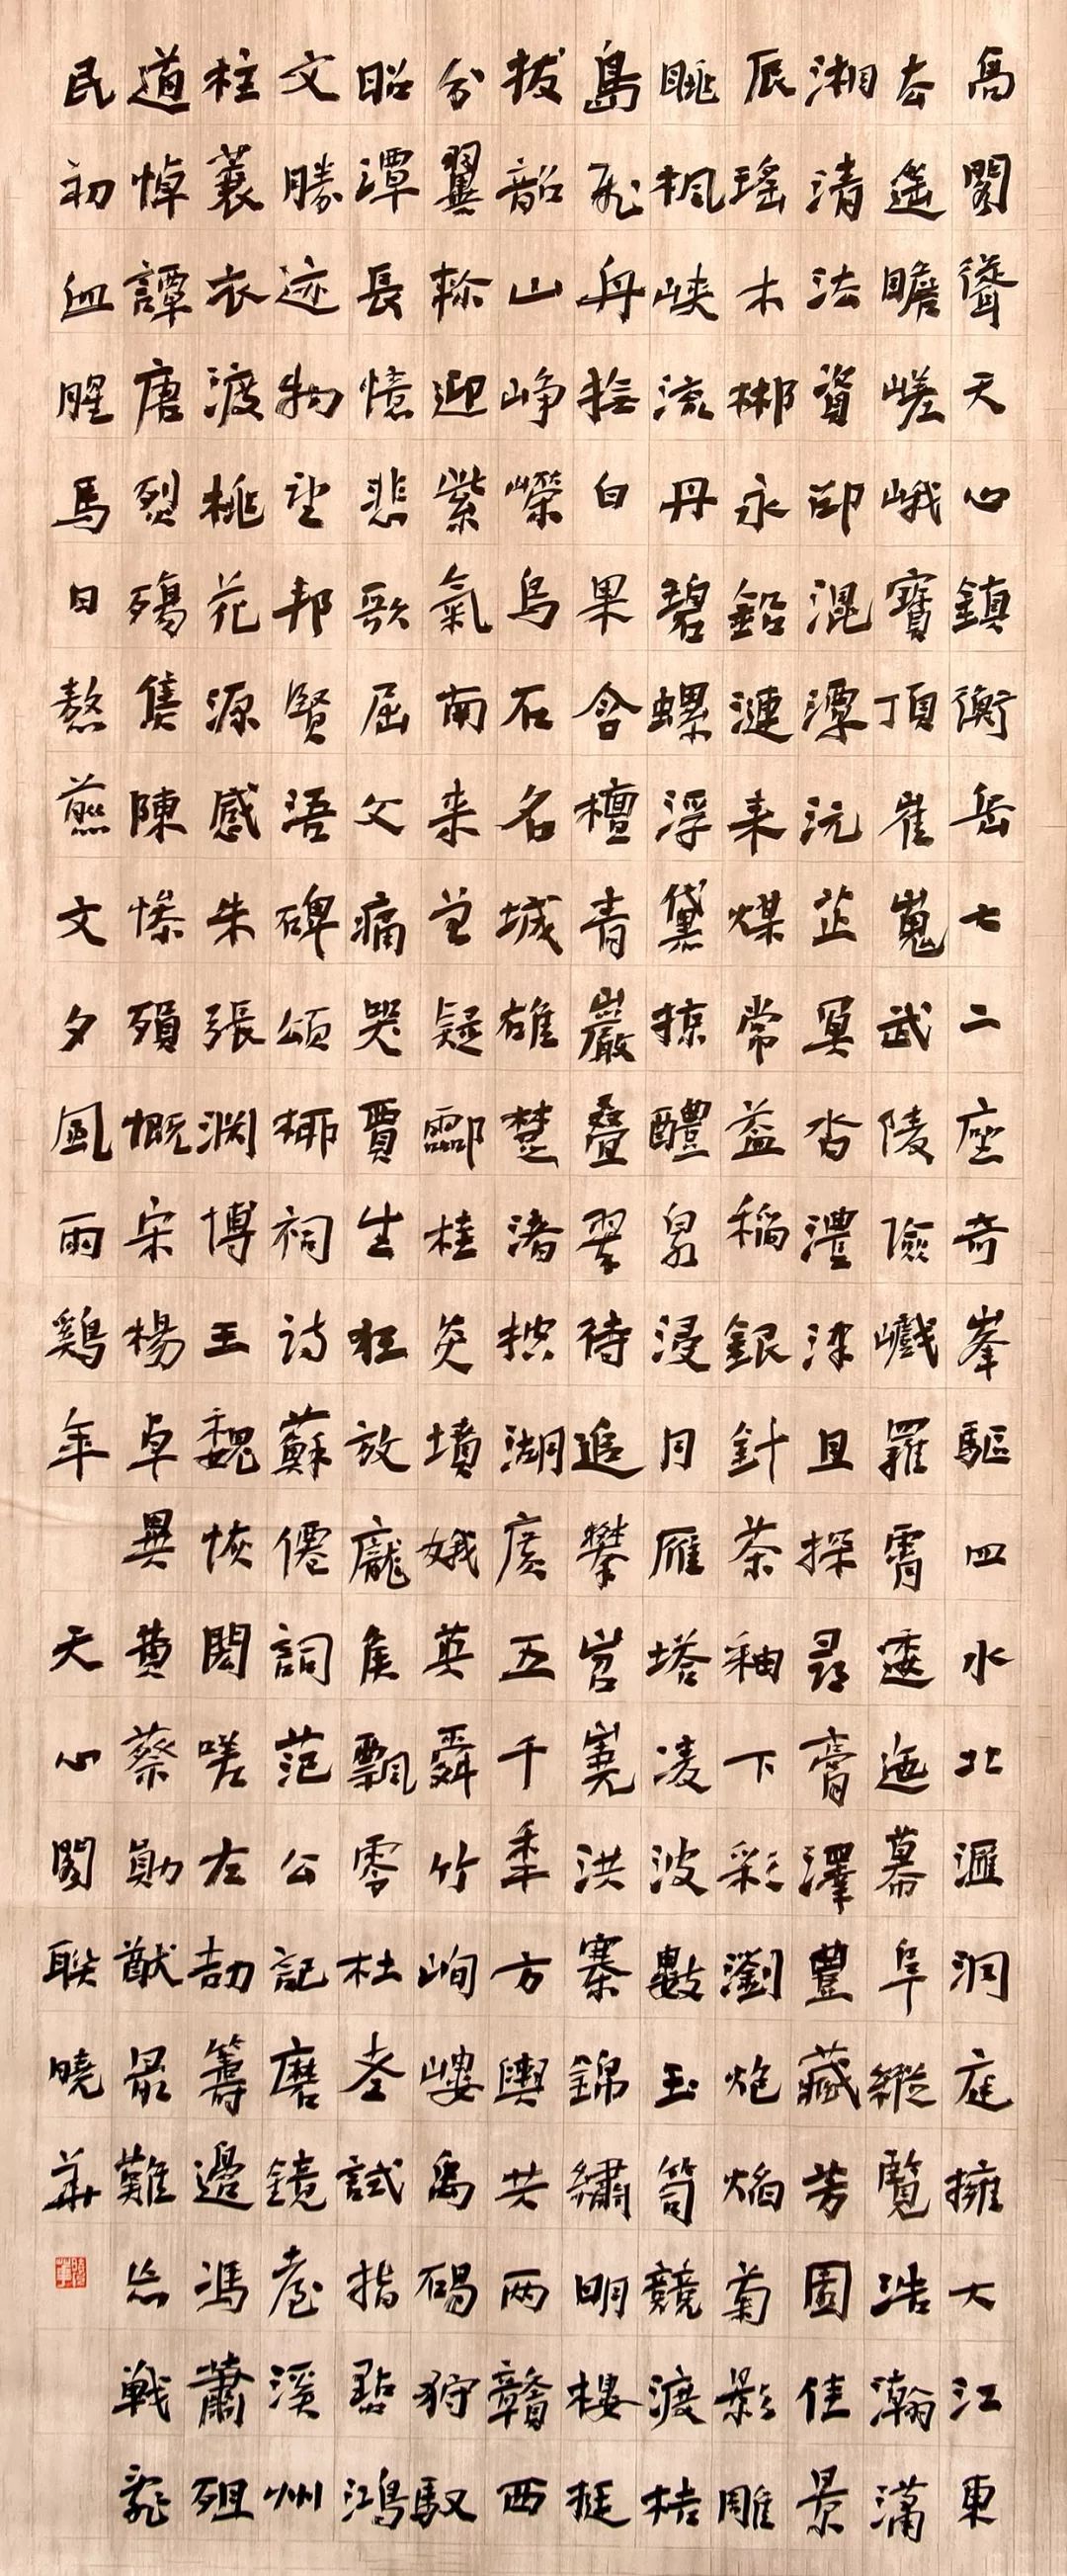 高閣聳天心鎮衡岳七二座奇峯驅四水北滙洞庭擁大江東
去遥瞻嵯峨寶頂崔嵬武陵險巇羅霄逶迤幕阜縱覽浩瀚滿
湘清法資邵混潭沅芷冥沓澧津且探尋膏澤豐藏芳園佳景
辰瑤木郴永鉛漣耒煤常益稲銀針茶釉下彩瀏炮焰菊影雕
眺楓峡流丹碧螺浮黛掠醴泉浸月雁塔凌波數玉筍競渡桔
島飛舟撫白果含檀青巖叠翠待追攀岧嶤洪寨錦繡明樓挺
拔韶山崢嶸烏石名城雄楚渚披湖廣五千秊方輿共兩贛西
分翼軫迎紫氣南来豈疑酃桂炎墳娥英舜竹峋嶁禹碣狩馭
昭潭長憶悲歌屈父痛哭賈生狂放龐矦飄零杜老試指點鴻
文勝迹物望邦賢浯碑頌柳祠诗蘇僊詞范公記磨鏡臺溪州
柱蓑衣渡桃花源感朱張淵博王魏恢閎嗟左劼籌邊馮蕭殂
道悼譚唐烈殤隽陳慘殞慨宋楊卓異黄蔡勛猷最難忘戰龍
民初血腥馬日熬煎文夕風雨鷄年 天心閣聯曉華